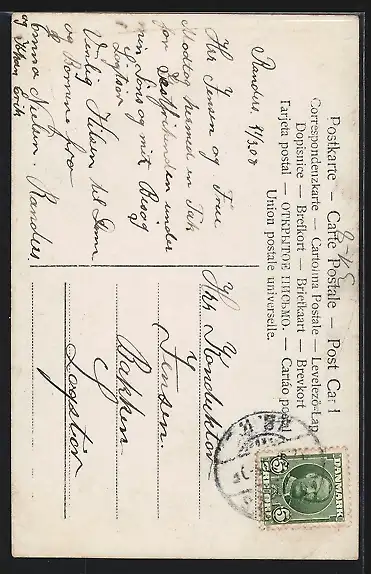 Postkarte — Carte Postale — Post Card
Correspondenzkarte — Cartolina Postale — Levelező-Lap
Dopisnice — Brefkort — Briefkaart — Brevkort
Tarjeta postal — ОТКРЫТОЕ ПИСЬМО. — Cartão postal
Union postale universelle.
Randers,
Hr Jensen og Frue
Modtag hermed en Tak
for under
min og mit Besøg
i Løgstør
Venlig Hilsen til Dem
og Børnene fra
Emma Nielsen. Randers
og Johan Erik
Hr Konduktør
Jensen.
Bakken
Løgstør
DANMARK
5 5